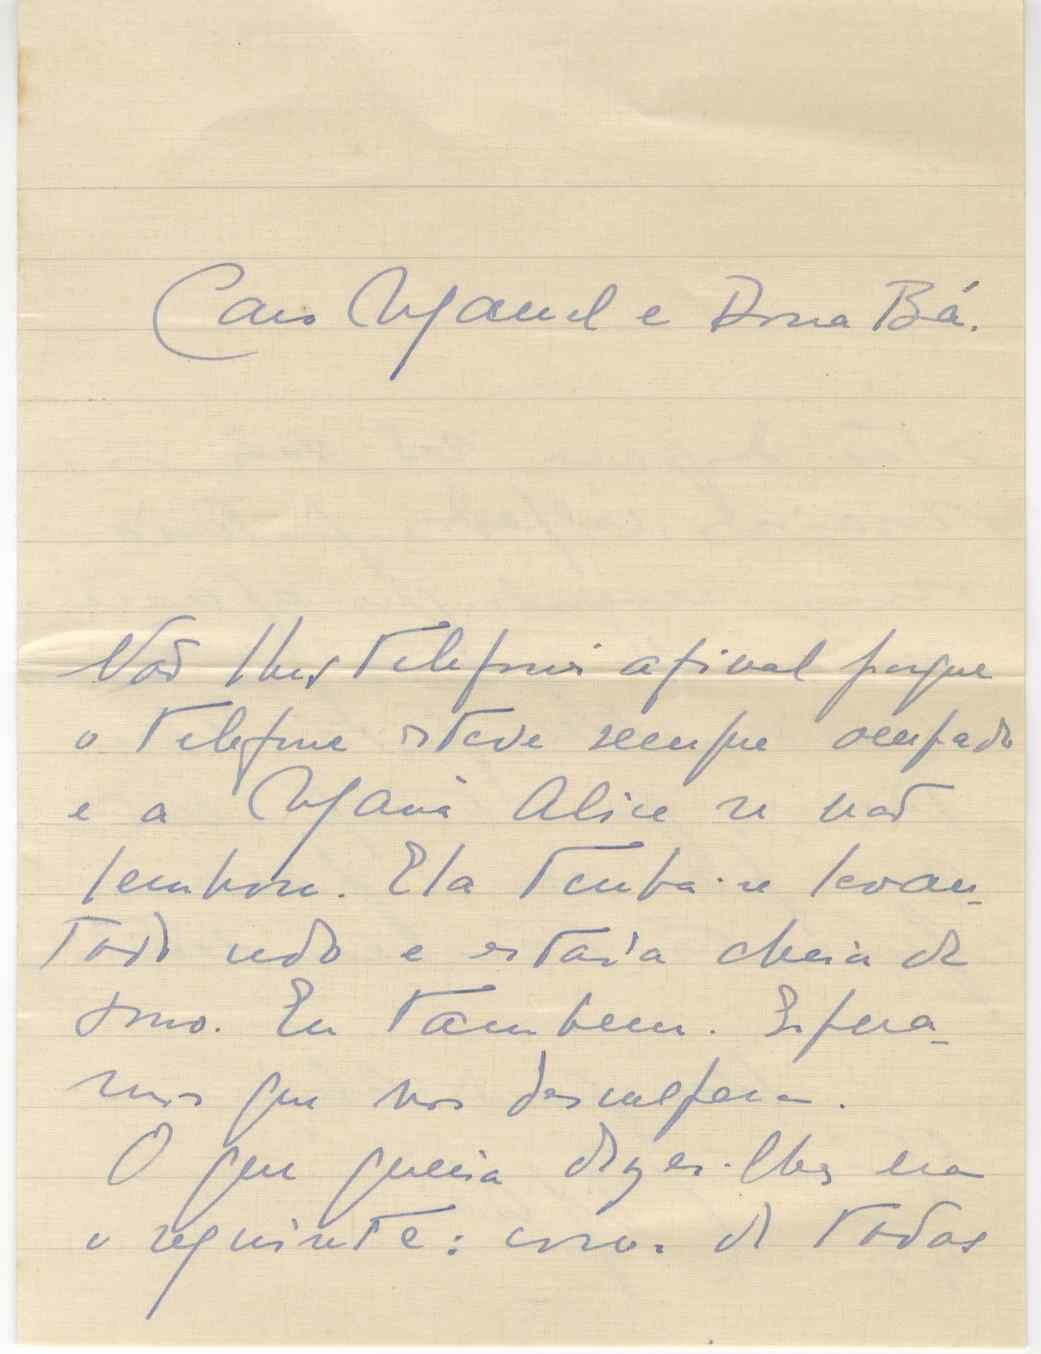 Caro Manel e Dona Bá.
Não lhes telefonei afinal porque
o telefone esteve sempre ocupado
e a Maria Alice se não
lembrou. Ela tinha-se levan-
tado cedo e estaria cheia de
sono. Eu tambem. Espera-
mos que nos desculpem.
O que queria dizer-lhes era
o seguinte: como de todas